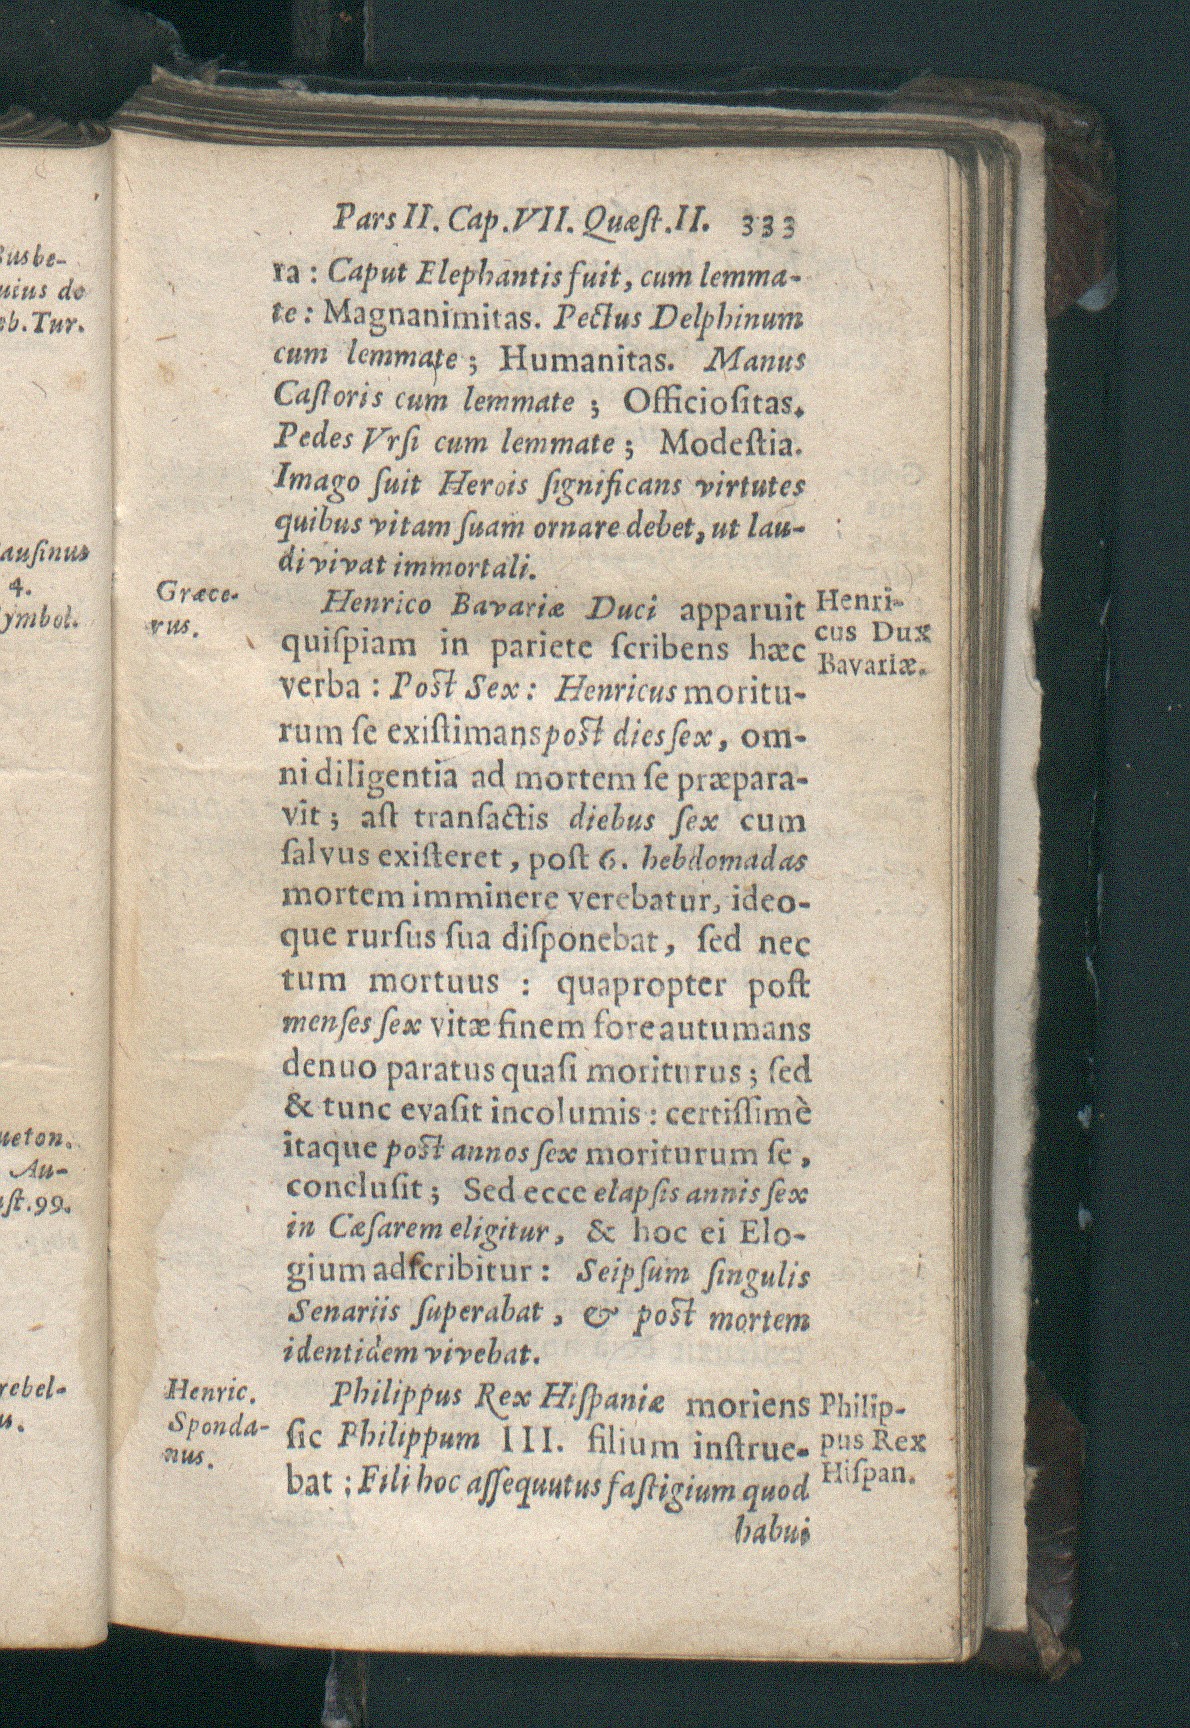 Busbe-
uius de
eb. Tur.
Causinus
4.
Symbol.
ueton.
Au-
ust. 99.
rebel-
us.
Pars II. Cap. VII. Quæſt. II. 333
ra : Caput Elephantis fuit, cum lemma-
te : Magnanimitas. Pectus Delphinum
cum lemmate ; Humanitas. Manus
Caſtoris cum lemmate ; Officioſitas.
Pedes Vrſi cum lemmate ; Modeſtia.
Imago fuit Herois ſignificans virtutes
quibus vitam ſuam ornare debet, ut lau-
di vivat immortali.
Græce-
rus.
Henrico Bavariæ Duci apparuit
quiſpiam in pariete ſcribens hæc
verba : Poſt Sex : Henricus moritu-
rum ſe exiſtimans poſt dies ſex, om-
ni diligentia ad mortem ſe præpara-
vit ; aſt tranſactis diebus ſex cum
ſalvus exiſteret, poſt 6. hebdomadas
mortem imminere verebatur, ideo-
que rurſus ſua diſponebat, ſed nec
tum mortuus : quapropter poſt
menſes ſex vitæ finem fore autumans
denuo paratus quaſi moriturus ; ſed
& tunc evaſit incolumis : certiſſimè
itaque poſt annos ſex moriturum ſe,
concluſit ; Sed ecce elapſis annis ſex
in Cæſarem eligitur, & hoc ei Elo-
gium adſcribitur : Seipſum ſingulis
Senariis ſuperabat, & poſt mortem
identidem vivebat.
Henri-
cus Dux
Bavariæ.
Henric.
Sponda-
nus.
Philippus Rex Hiſpaniæ moriens
ſic Philippum III. filium inſtrue-
bat ; Fili hoc aſſequutus faſtigium quod
habui
Philip-
pus Rex
Hiſpan.